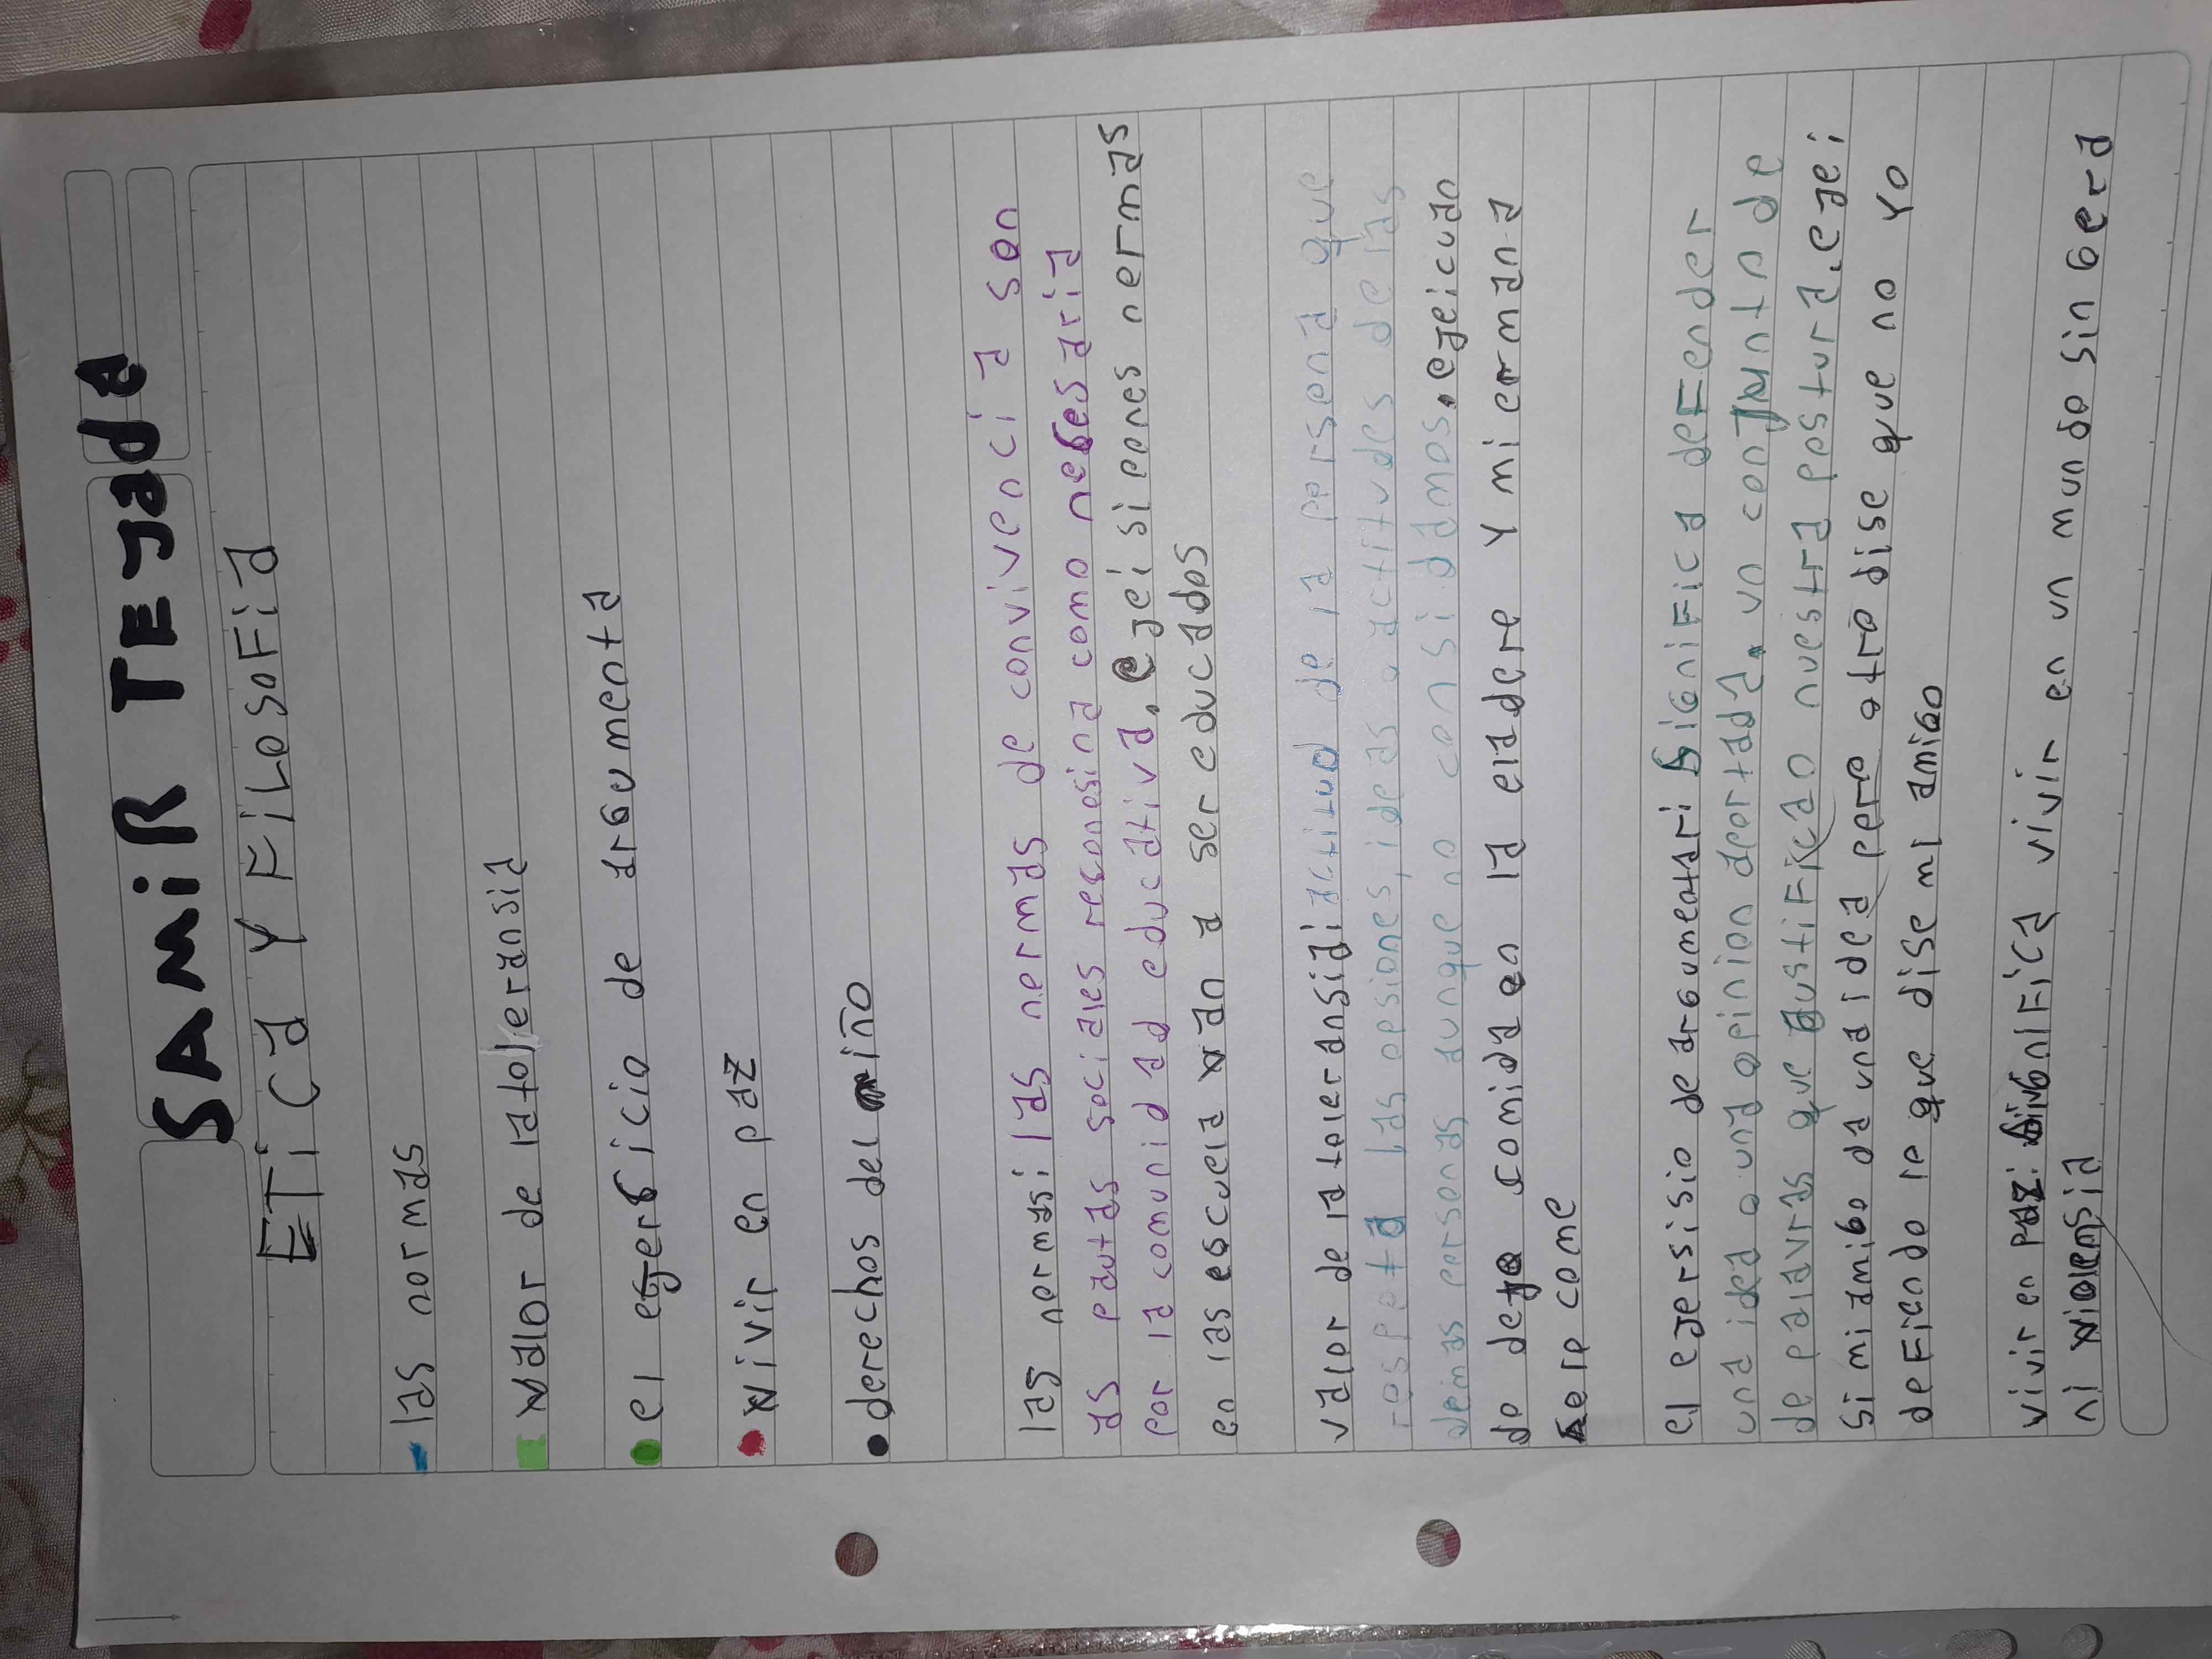 SAMiR TEjada
ETiCa Y FiLosoFia
las normas
valor de la toleransia
el ejersicio de argumenta
vivir en paz
derechos del niño
las normas: las normas de convivencia son
as pautas sociales reconosina como nesesaria
por la comunid ad educativa. ejei si eones nermas
en las escuela van a ser educados
valor de la toleransia: actitud de la persona que
respeta las opsiones, ideas o actitudes de las
demas personas aunque no censidamos. ejeicudo
de deje comida en la eladere Y mi ermana
se le come
el ejersisio de argumentar: significa deFender
una idea o una opinion aportada. un conjuntn de
de palavras que justiFicao nuestra postura. eje:
si mi amigo da una idea pero otro dise que no Yo
deFiendo le que dise mi amigo
vivir en paz: significa vivir en un mundo sin gera
ni violensia